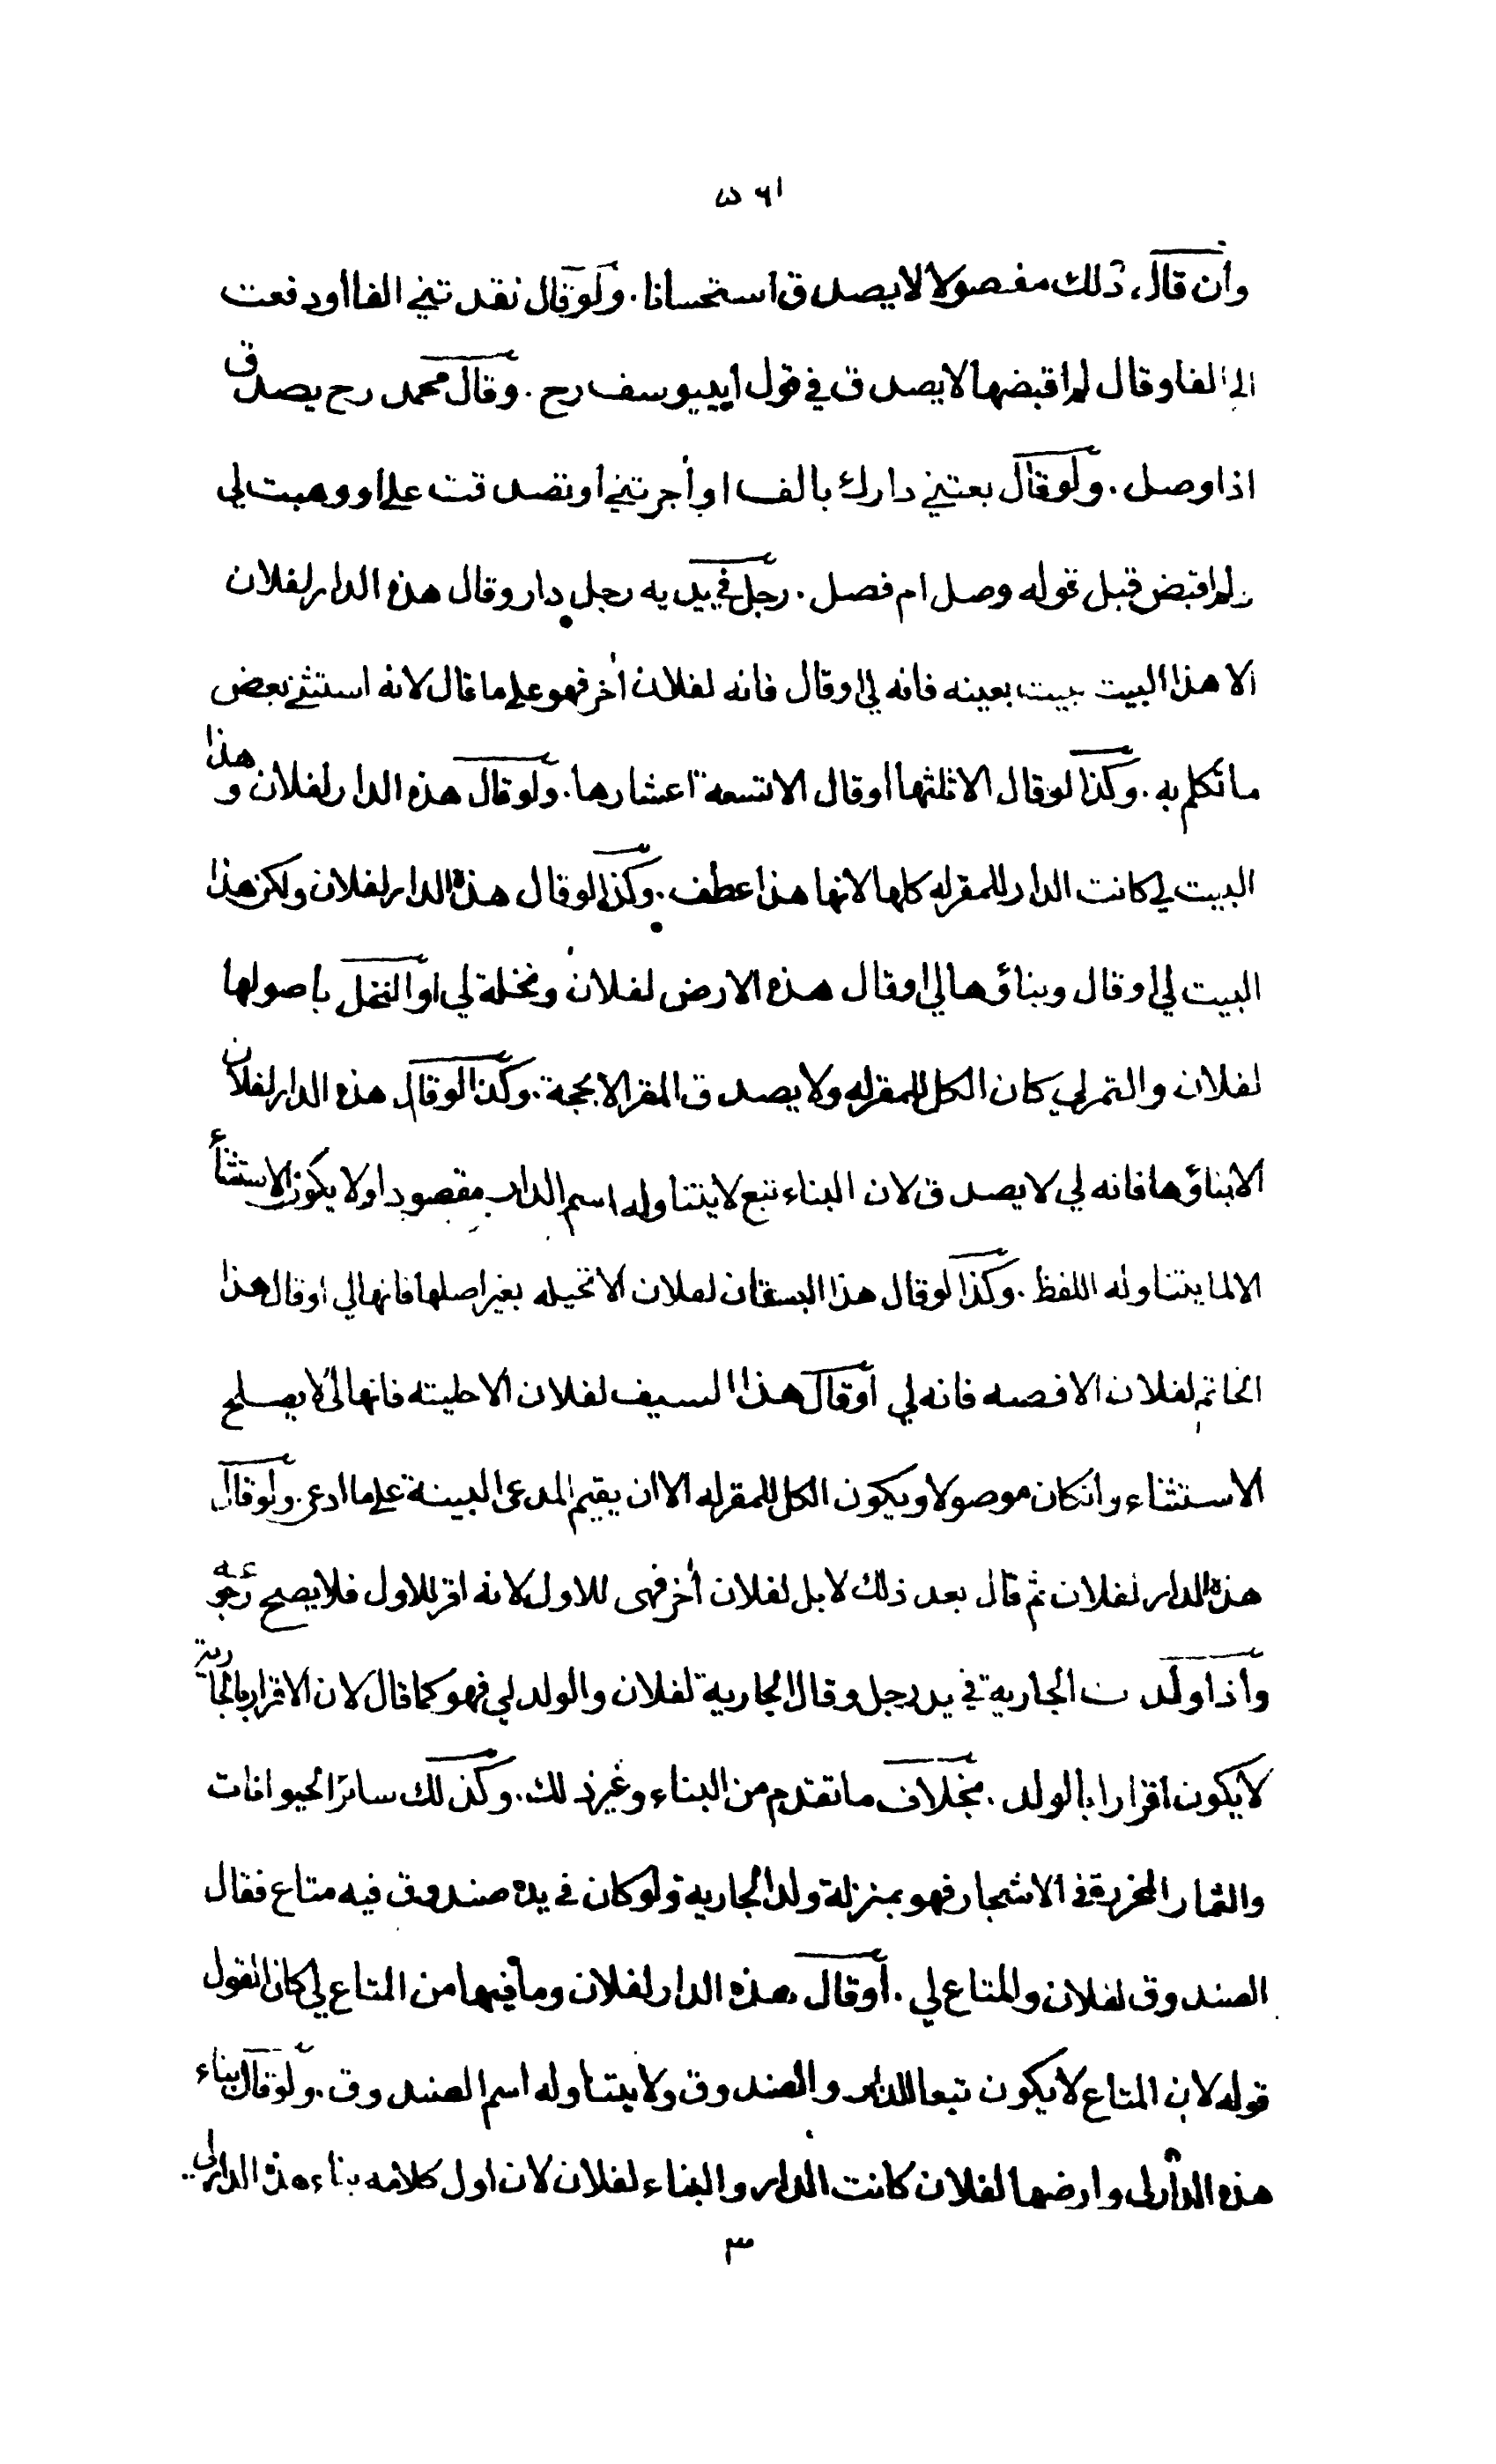 ٥٦١
وان قال ذلك مفصولا لا يصدق استحسانا . ولو قال نقد تني الفا او دفعت
الى الفا وقال لم اقبضها لا يصدق في قول ابي يوسف رح . وقال محمد رح يصدق
اذا وصل . ولو قال بعتني دارك بالف او أجرتني او تصدقت علي او وهبت لي
ولم اقبض قبل قوله وصل ام فصل . رجل في يديه رجل دار وقال هذه الدار لفلان
الا هذا البيت بيت بعينه فانه لي او قال فانه لفلان أخر فهو على ما قال لانه استثنى بعض
ما تكلم به . وكذا لو قال الا ثلثها او قال الا تسعة اعشارها . ولو قال هذه الدار لفلان وهذا
البيت لي كانت الدار للمقر له كلها لانها هذا عطف . وكذا لو قال هذه الدار لفلان ولكن هذا
البيت لي او قال وبناؤها لي او قال هذه الارض لفلان ونخلة لي او النخل باصولها
لفلان والثمر لي كان الكل للمقر له ولا يصدق المقر الا بحجة . وكذا لو قال هذه الدار لفلان
الا بناؤها فانه لي لا يصدق لان البناء تبع لا يتناوله اسم الدار مقصودا ولا يكون الاستثنأء
الا لما يتناوله اللفظ . وكذا لو قال هذا البستان لفلان الا نخيله بغير اصلها فانها لي او قال هذا
الخاتم لفلان الا فصه فانه لي او قال هذا السيف لفلان الا حليته فانها لي لا يصلح
الاستثناء وان كان موصولا ويكون الكل للمقر له الا ان يقيم المدعى البينة على ما ادعى . ولو قال
هذه الدار لفلان ثم قال بعد ذلك لا بل لفلان أخر فهى للاول لانه اقر للاول فلا يصح رجوعه
واذا ولدت الجارية في يد رجل وقال الجارية لفلان والولد لي فهو كما قال لان الاقرار بالجارية
لا يكون اقرارا بالولد . بخلاف ما تقدم من البناء وغير ذلك . وكذلك سائر الحيوانات
والثمار المحرزة في الاشجار فهو بمنزلة ولد الجارية ولو كان في يده صندوق فيه متاع فقال
الصندوق لفلان والمتاع لي . او قال هذه الدار لفلان وما فيها من المتاع لي كان القول
قوله لان المتاع لا يكون تبعا للدار والصندوق ولا يتناوله اسم الصندوق . ولو قال بناء
هذه الدار لى وارضها لفلان كانت الدار والبناء لفلان لان اول كلامه بناء هذه الدار لي
٣